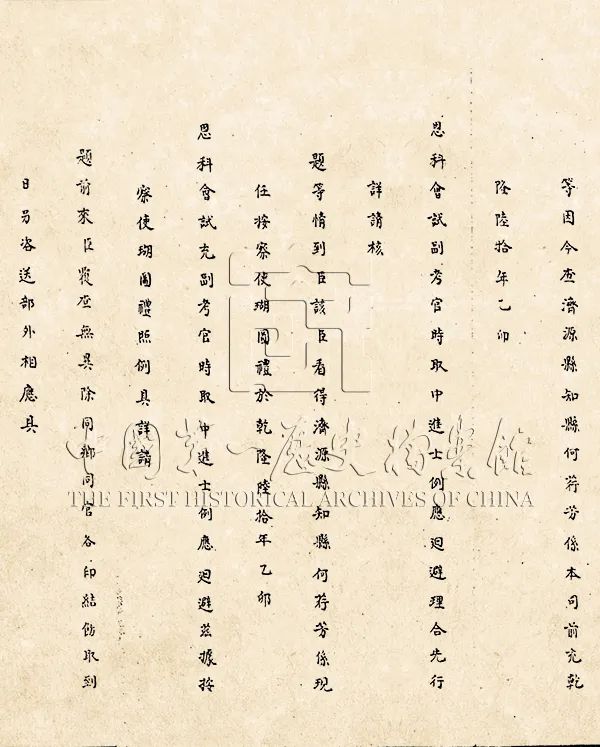 等因今查濟源縣知縣何荇芳係本司前充乾
隆陸拾年乙卯
恩科會試副考官時取中進士例應迴避理合先行
詳請核
題等情到臣該臣看得濟源縣知縣何荇芳係現
任按察使瑚圖禮於乾隆陸拾年乙卯
恩科會試充副考官時取中進士例應迴避茲據按
察使瑚圖禮照例具詳請
題前來臣覆查無異除同鄉同官各印結飭取到
日另咨送部外相應具
中國第一歷史檔案館
THE FIRST HISTORICAL ARCHIVES OF CHINA